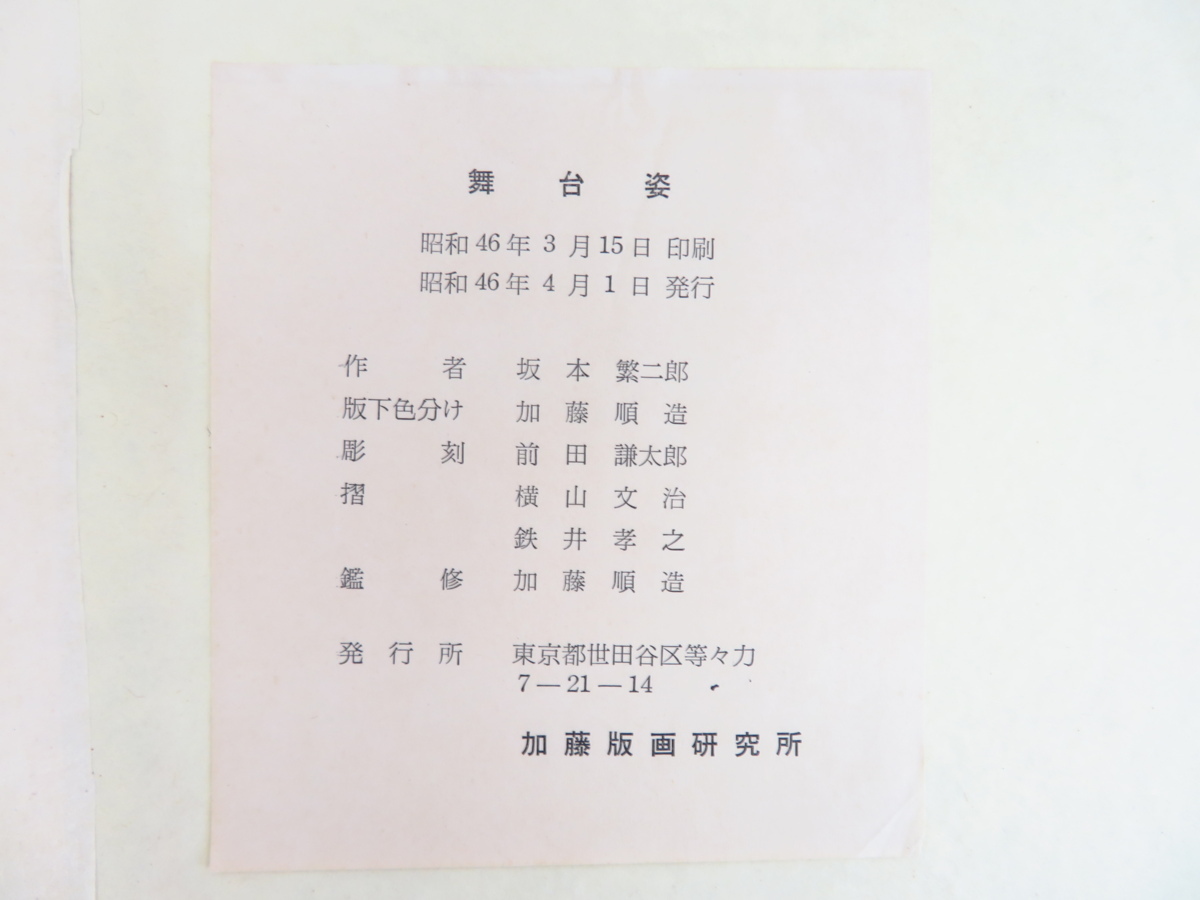 舞台姿
昭和46年3月15日 印刷
昭和46年4月1日 発行
作者 坂本繁二郎
版下色分け 加藤順造
彫刻 前田謙太郎
摺 横山文治
鉄井孝之
鑑修 加藤順造
発行所 東京都世田谷区等々力
7—21—14
加藤版画研究所